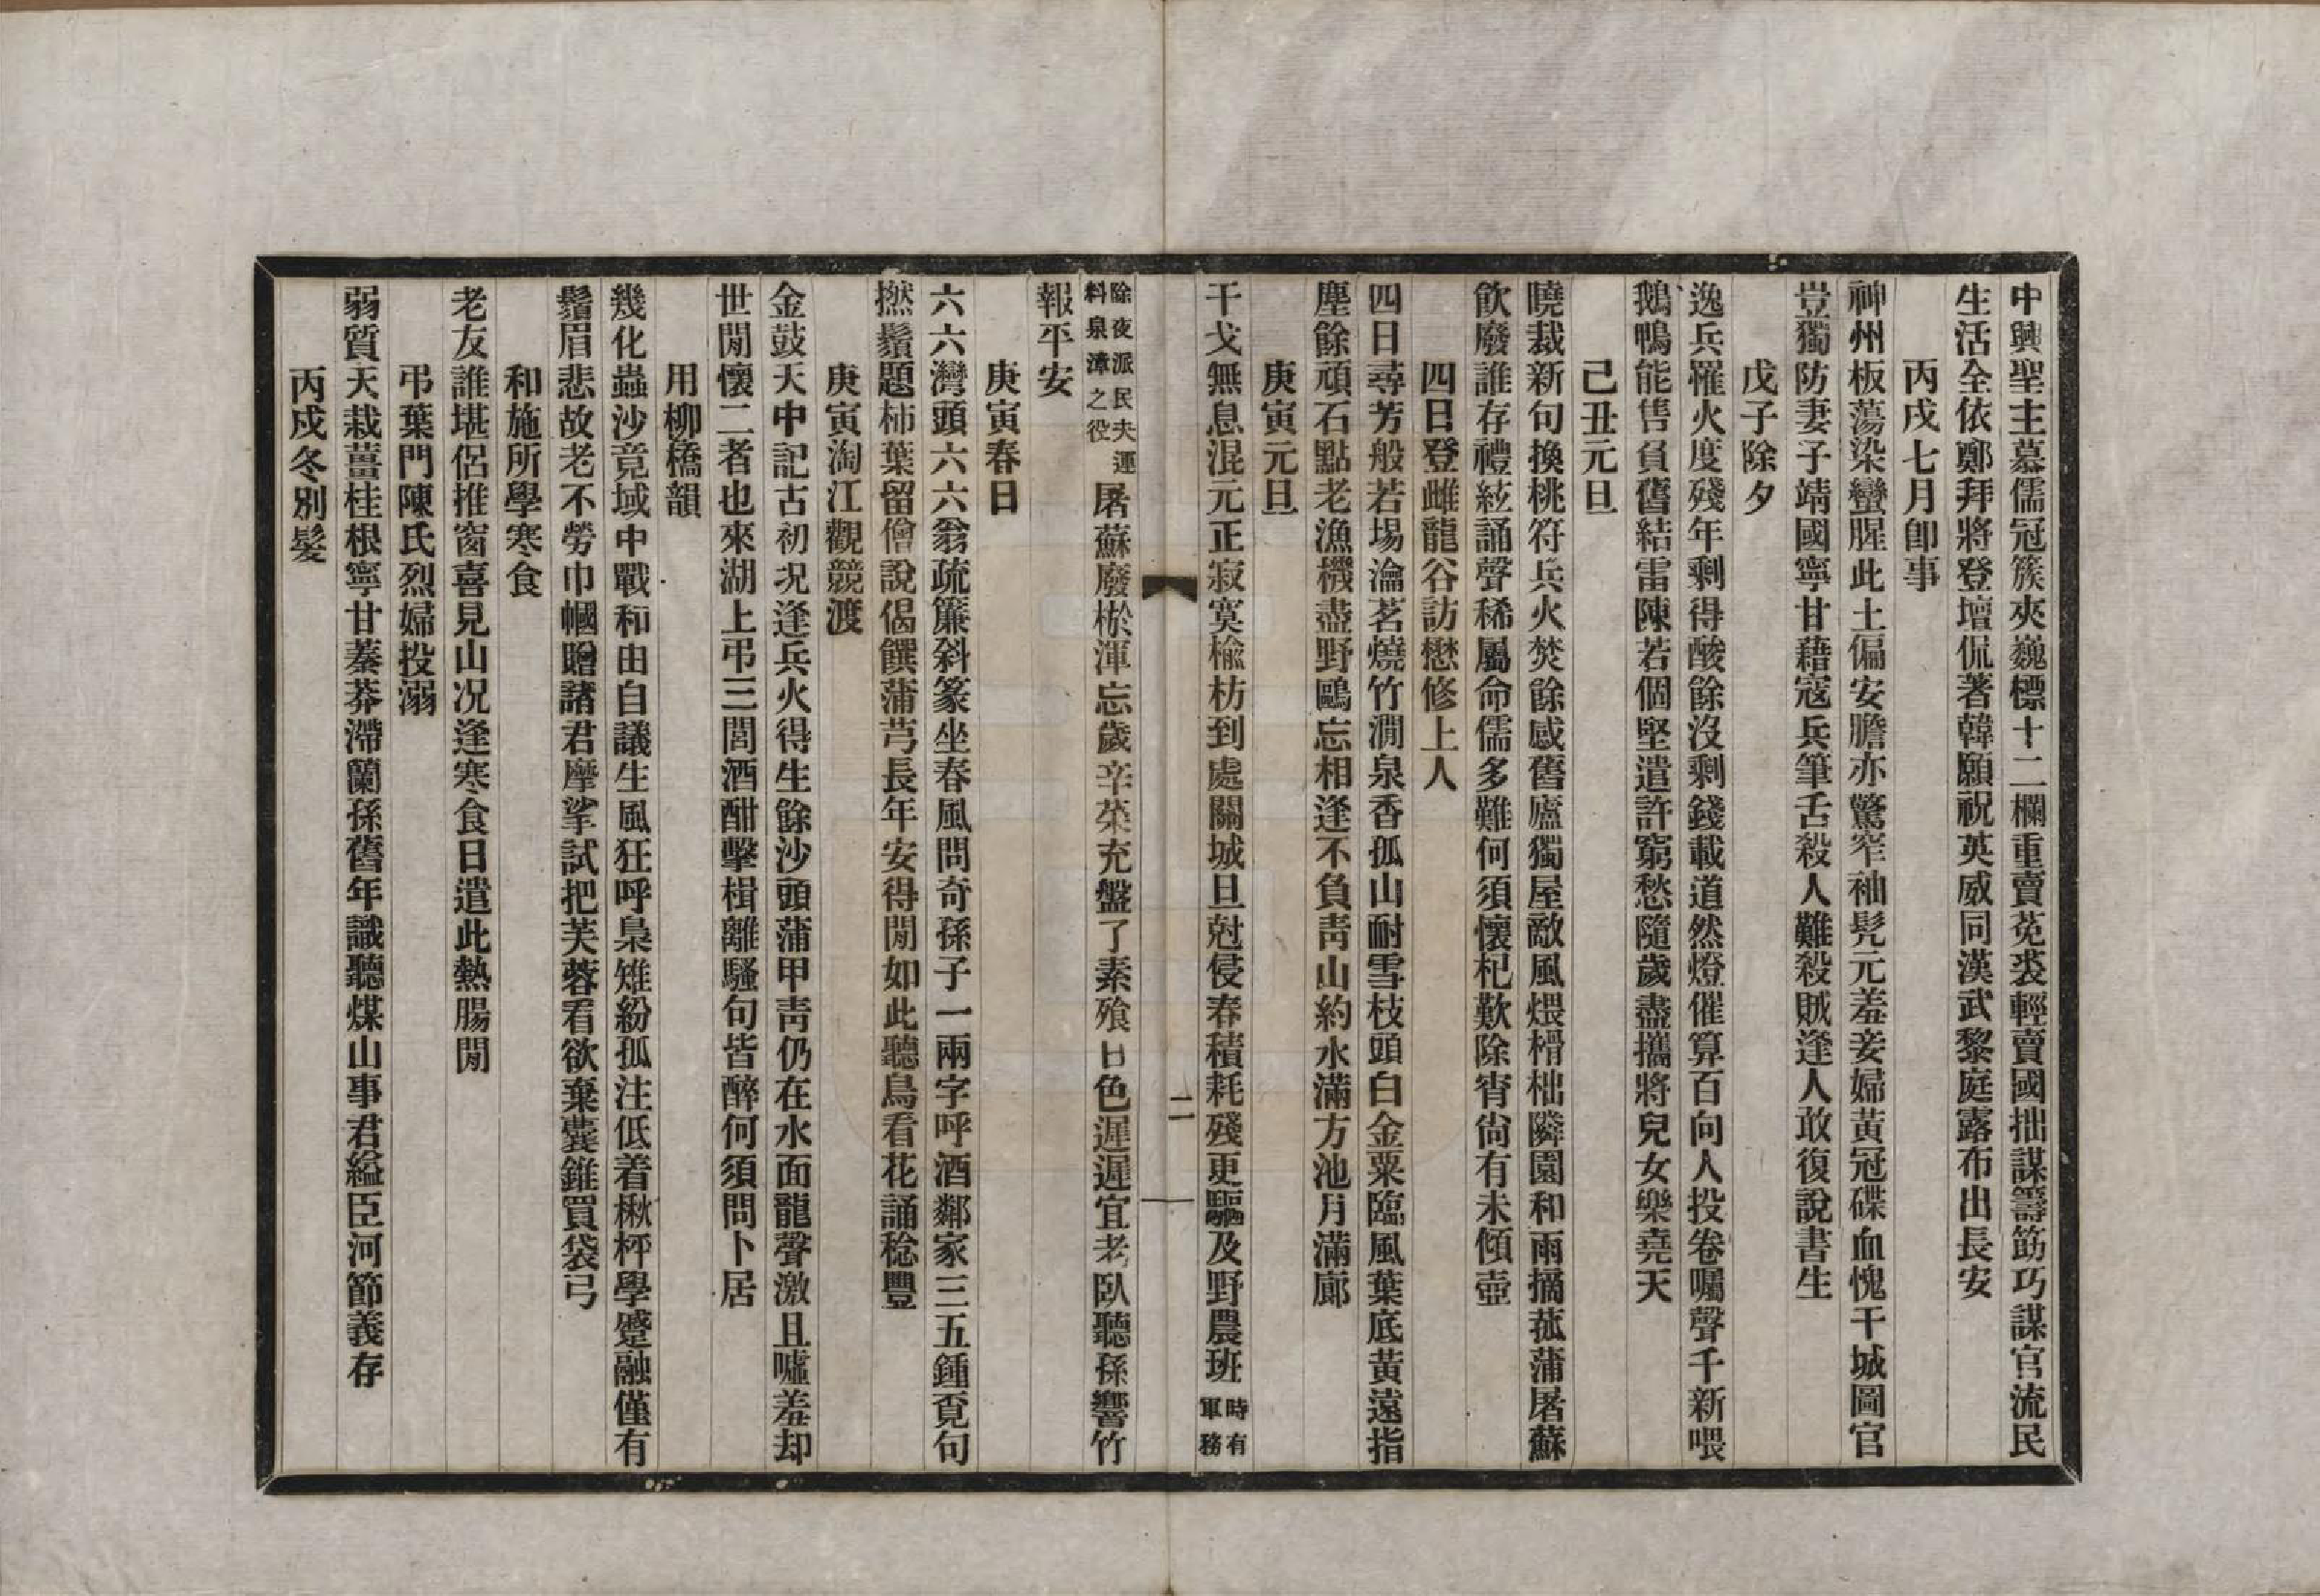 中興聖主慕儒冠簇夾巍標十二欄重賣菟裘輕賣國拙謀籌筯巧謀官流民
生活全依鄭拜將登壇侃著韓願祝英威同漢武黎庭露布出長安
丙戌七月卽事
神州板蕩染蠻腥此土偏安膽亦驚窄袖髠元羞妾婦黃冠碟血愧干城圖官
豈獨防妻子靖國寧甘藉寇兵筆舌殺人難殺賊逢人敢復說書生
戊子除夕
逸兵罹火度殘年剩得酸餘沒剩錢載道然燈催算百向人投卷囑聲千新喂
鵝鴨能售負舊結雷陳若個堅遣許窮愁隨歲盡攜將兒女樂堯天
己丑元旦
曉裁新句換桃符兵火焚餘感舊廬獨屋敵風煨榾柮隣園和雨摘菰蒲屠蘇
飲廢誰存禮絃誦聲稀屬命儒多難何須懷杞歎除宵尙有未傾壺
四日登雌龍谷訪懋修上人
四日尋芳般若場瀹茗燒竹澗泉香孤山耐雪枝頭白金粟臨風葉底黃遠指
塵餘頑石點老漁機盡野鷗忘相逢不負靑山約水滿方池月滿廊
庚寅元旦
干戈無息混元正寂寞楡枋到處關城旦尅侵春積耗殘更驅及野農班時有軍務
二
除夜派民夫運料泉漳之役屠蘇廢椒渾忘歲辛菜充盤了素飱日色遲遲宜老臥聽孫響竹
報平安
庚寅春日
六六灣頭六六翁疏簾斜篆坐春風問奇孫子一兩字呼酒鄰家三五鍾覔句
撚鬚題柿葉留僧說偈饌蒲芎長年安得閒如此聽鳥看花誦稔豐
庚寅淘江觀競渡
金鼓天中記古初况逢兵火得生餘沙頭蒲甲靑仍在水面龍聲激且噓羞却
世閒懷二者也來湖上弔三閭酒酣擊楫離騷句皆醉何須問卜居
用柳橋韻
幾化蟲沙竟域中戰和由自議生風狂呼梟雉紛孤注低着楸枰學蹙融僅有
鬚眉悲故老不勞巾幗贈諸君摩挲試把芙蓉看欲棄囊錐買袋弓
和施所學寒食
老友誰堪侶推窗喜見山况逢寒食日遣此熱腸閒
弔葉門陳氏烈婦投溺
弱質天栽薑桂根寧甘蓁莽滯蘭孫舊年識聽煤山事君縊臣河節義存
丙戍冬別髮